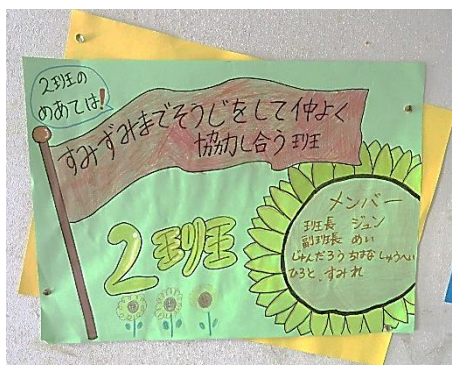 2班の
めあては!
すみずみまでそうじをして仲よく
協力し合う班
2班
メンバー
班長 ジュン
副班長 めい
じゅんだろう ちはな しゅうへい
ひろと、すみれ